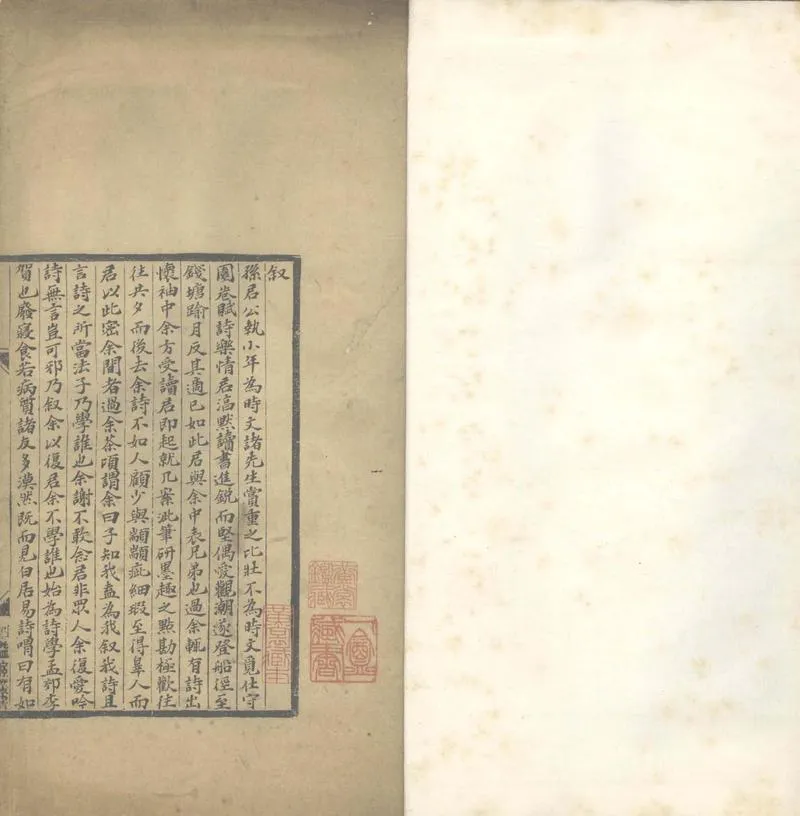 叙
孫君公執小年為時文諸先生賞重之比壯不為時文竟仕守
園巷賦詩樂情君湻默讀書進銳而堅偶愛觀潮遂登船徑至
錢塘踰月反其適已如此君與余中表兄弟也過余輒有詩出
懷袖中余方受讀君即起就几案泚筆研墨趣之點勘極歡往
往共夕而後去余詩不如人顧少與顓顓疵細瑕至得辠人而
君以此密余間者過余茶頃謂余曰子知我盍為我叙我詩且
言詩之所當法子乃學誰也余謝不敢念君非眾人余復愛吟
詩無言豈可邪乃叙余以復君余不學誰也始為詩學孟郊李
賀也廢寢食若病質諸友多漠然既而見白居易詩喟曰有如
藏書